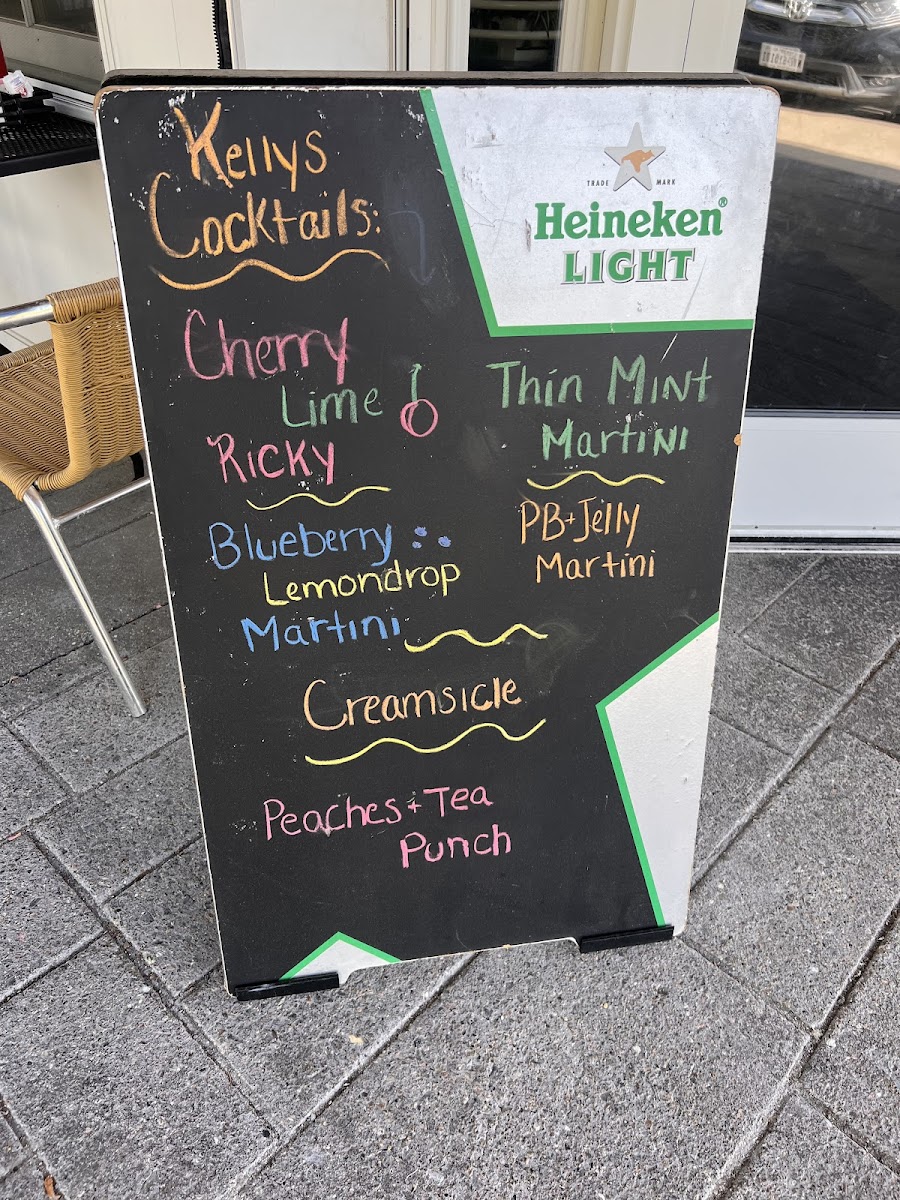 Kellys
Cocktails:
TRADE MARK
Heineken®
LIGHT
Cherry
Lime
Ricky
Blueberry
Lemondrop
Martini
Thin Mint
Martini
PB+Jelly
Martini
Creamsicle
Peaches + Tea
Punch